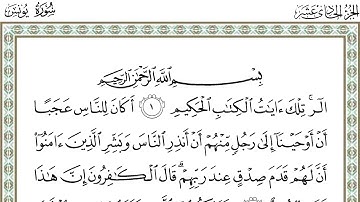 سُورَةُ يُونُسَ الجزء الحادى عشر
بِسْمِ اللَّهِ الرَّحْمَٰنِ الرَّحِيمِ
الٓر ۚ تِلْكَ ءَايَٰتُ الْكِتَٰبِ الْحَكِيمِ ١ أَكَانَ لِلنَّاسِ عَجَبًا
أَنْ أَوْحَيْنَآ إِلَىٰ رَجُلٍ مِّنْهُمْ أَنْ أَنذِرِ النَّاسَ وَبَشِّرِ الَّذِينَ ءَامَنُوٓا
أَنَّ لَهُمْ قَدَمَ صِدْقٍ عِندَ رَبِّهِمْ ۗ قَالَ الْكَٰفِرُونَ إِنَّ هَٰذَا